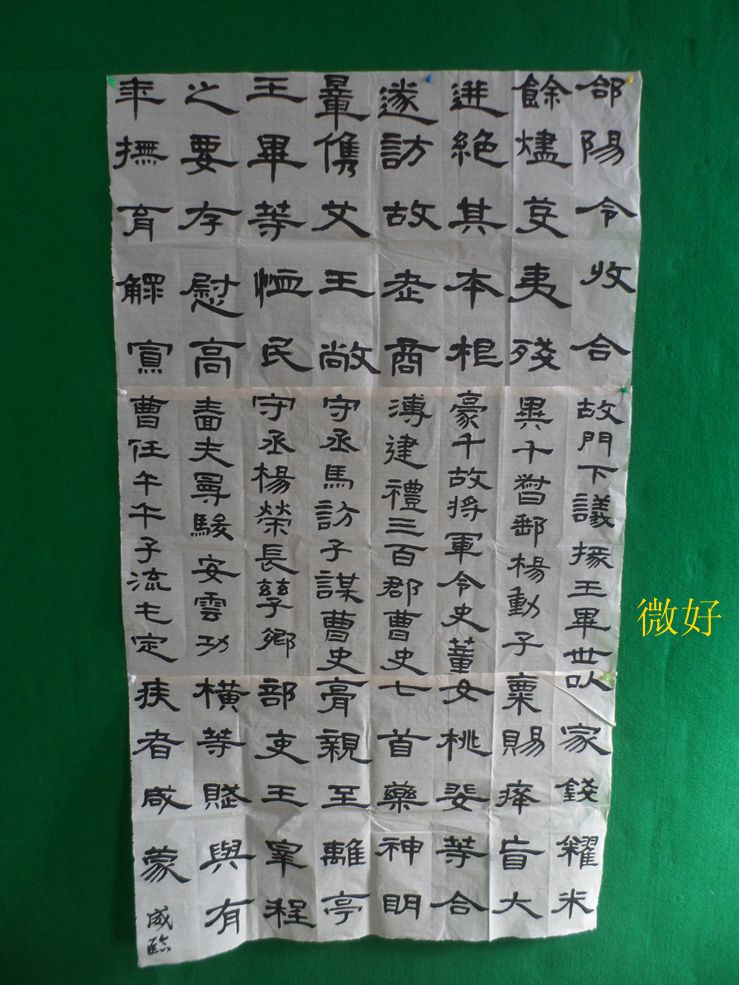 郃陽令收合
餘燼芟夷殘
迸絕其本根
遂訪故老商
量儁艾王敞
王畢等恤民
之要存慰高
年撫育鰥寡
故門下議掾王畢世以
異千督郵楊動子
豪千故將軍令史董
溥建禮三百郡曹史
守丞馬訪子謀曹史
守丞楊榮長孳鄉
嗇夫曼駿安雲功
曹任午午子流屯定
家錢糴米
粟賜瘽盲大
女桃婓等合
七首藥神明
膏親至離亭
部吏王宰程
橫等賦與有
疾者咸蒙
威臨
微好